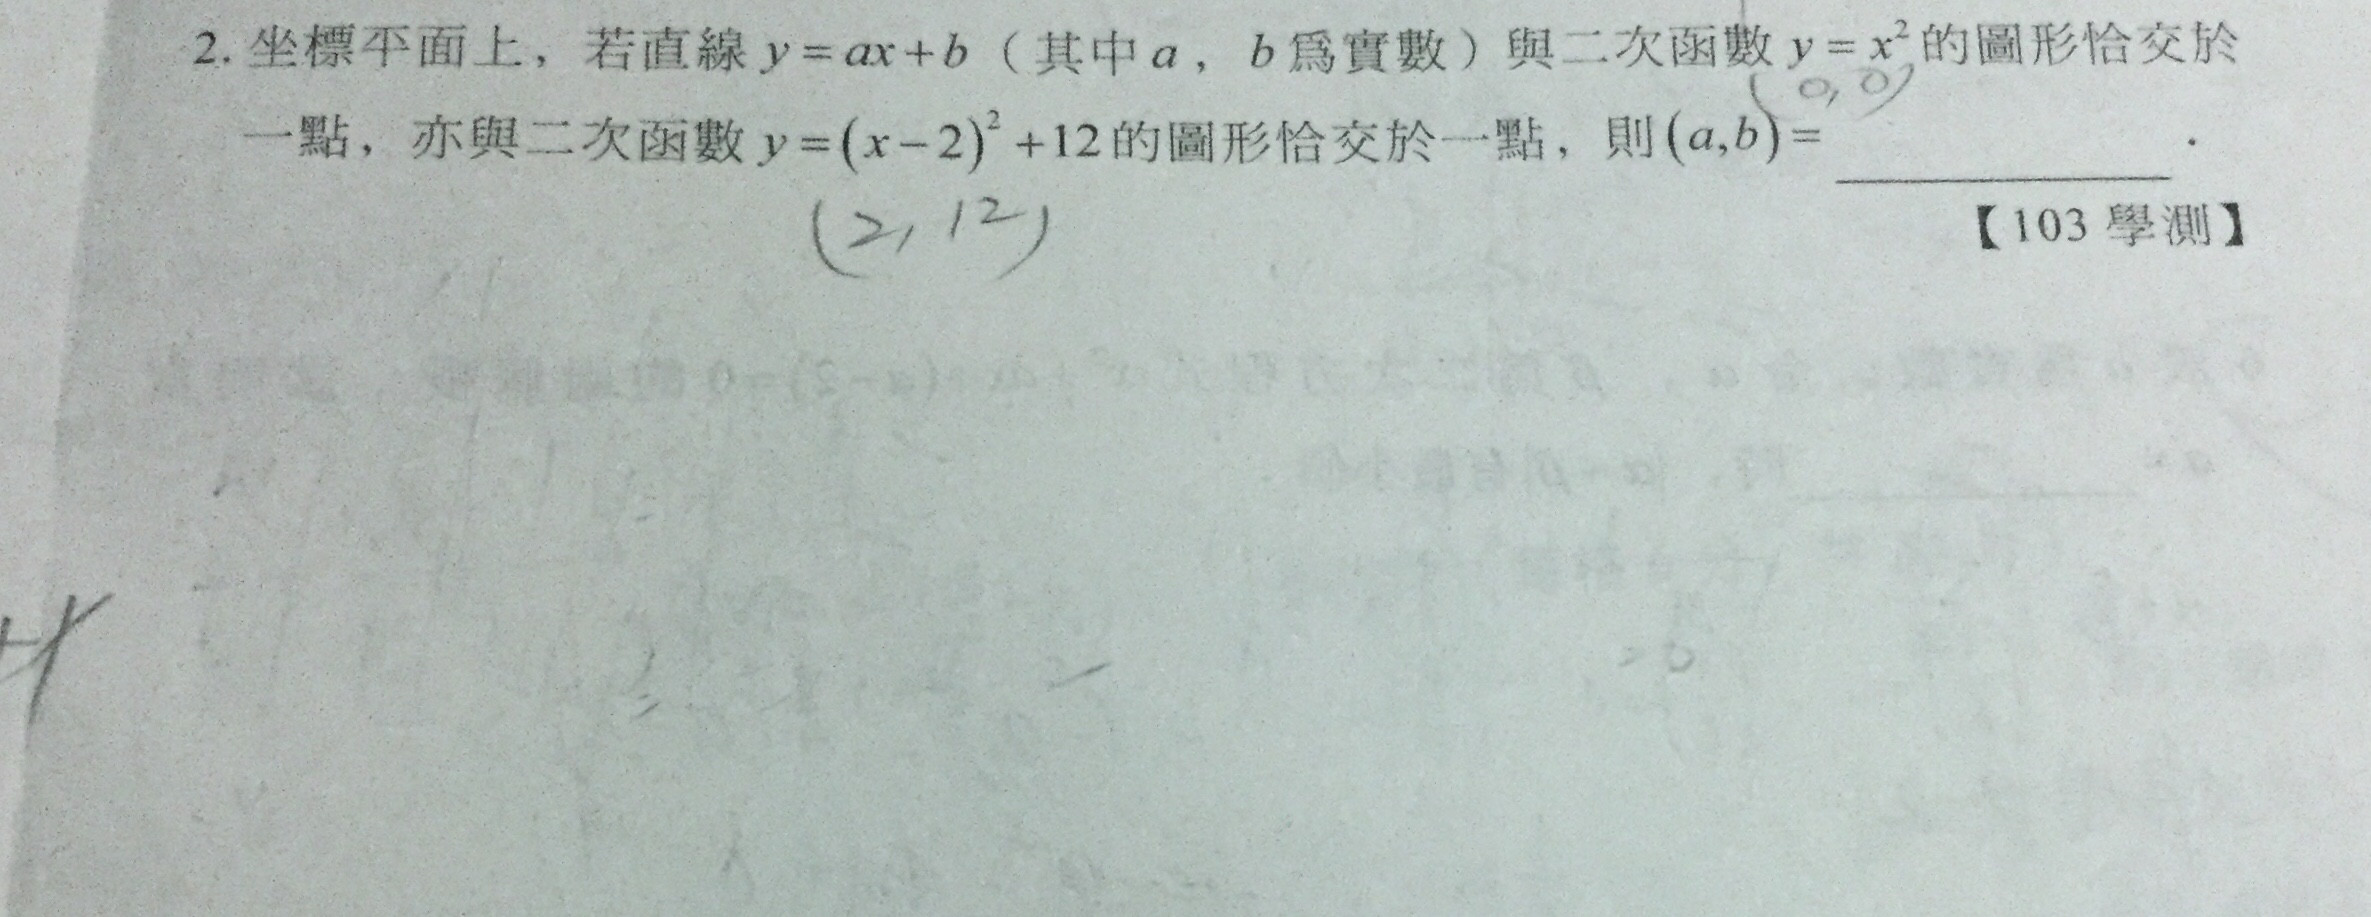 2. 坐標平面上，若直線 y=ax+b（其中 a，b 爲實數）與二次函數 y=x² 的圖形恰交於
(0,0)
一點，亦與二次函數 y=(x-2)²+12 的圖形恰交於一點，則(a,b)=__________．
(2,12)
【103 學測】